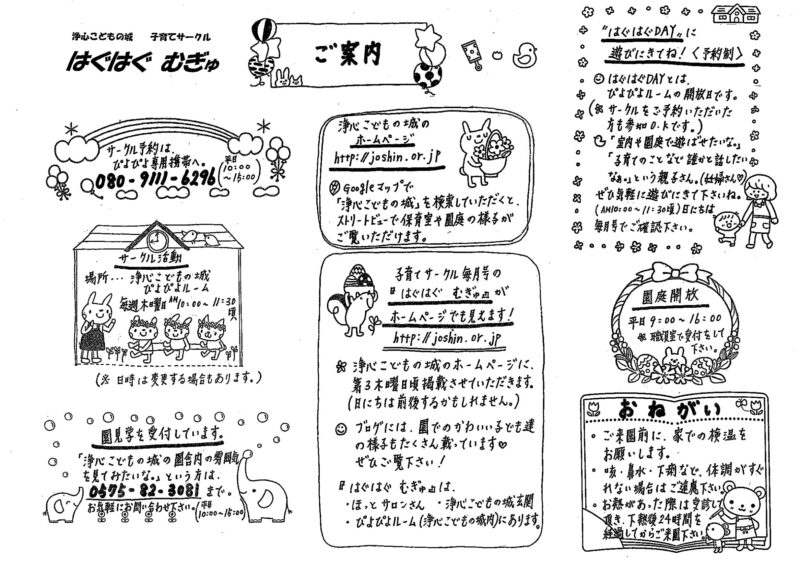 浄心こどもの城 子育てサークル
はぐはぐ むぎゅ
ご案内
サークル予約は、
ぴよぴよ専用携帯へ。
080-9111-6296
(平日
10:00
～15:00)
サークル活動
場所…浄心こどもの城
ぴよぴよルーム
毎週木曜日AM10:00～11:30
頃
(※日時は変更する場合もあります。)
園見学を受付しています。
「浄心こどもの城の園舎内の雰囲気
を見てみたいな。」という方は、
0595-82-3081 まで。
お気軽にお問い合わせ下さい。(平日
10:00～15:00)
浄心こどもの城の
ホームページ
http://joshin.or.jp
Googleマップで
「浄心こどもの城」を検索していただくと、
ストリートビューで保育室や園庭の様子が
ご覧いただけます。
子育てサークル毎月号の
『はぐはぐ むぎゅ』が
ホームページでも見えます!
http://joshin.or.jp
浄心こどもの城のホームページに、
第3木曜日頃掲載させていただきます。
(日にちは前後するかもしれません。)
ブログには、園でのかわいい子ども達
の様子もたくさん載っています♡
ぜひご覧下さい!
『はぐはぐ むぎゅ』は、
・ほっとサロンさん ・浄心こどもの城玄関
・ぴよぴよルーム(浄心こどもの城内)にあります。
"はぐはぐDAY"に
遊びにきてね!〈予約制〉
はぐはぐDAYとは、
ぴよぴよルームの開放日です。
(※サークルをご予約いただいた
方も参加O.Kです。)
「室内や園庭で遊ばせたいな。」
「子育てのことなど誰かと話したい
なぁ。」という親子さん。(妊婦さん♡)
ぜひ気軽に遊びにきて下さいね。
(AM10:00～11:30頃)日にちは
毎月号でご確認下さい。
園庭開放
平日9:00～16:00
※職員室で受付をして
下さい。
おねがい
・ご来園前に、家での検温を
お願いします。
・咳・鼻水・下痢など、体調がすぐ
れない場合はご遠慮下さい。
・お熱があった際は受診して
頂き、下熱後24時間を
経過してからご来園下さい。